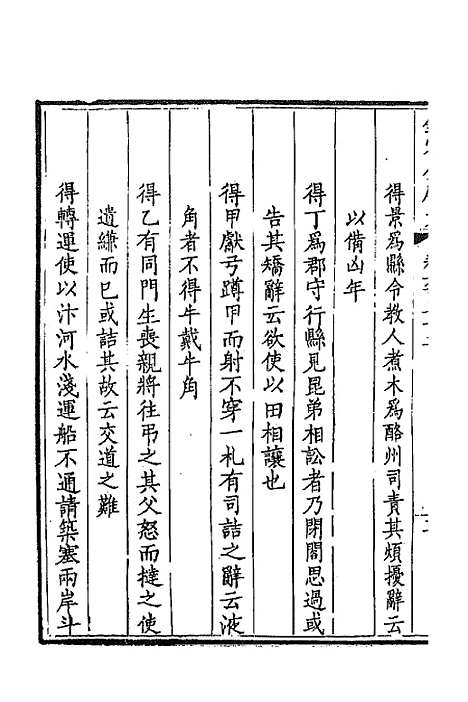 得景爲縣令教人煮木爲酪州司責其煩擾辭云
以備凶年
得丁爲郡守行縣見昆弟相訟者乃閉閤思過或
告其矯辭云欲使以田相讓也
得甲獻弓蹲甲而射不穿一札有司詰之辭云液
角者不得牛戴牛角
得乙有同門生喪親將往弔之其父怒而撻之使
遺縑而已或詰其故云交道之難
得轉運使以汴河水淺運船不通請築塞兩岸斗